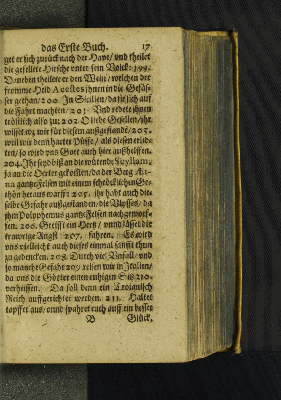 das Erste Buch. 17
get er sich zurück nach der Have/ vnd theilet
die gefellete Hirsche vnter sein Volck: 199.
Daneben theilete er den Wein/ welchen der
fromme Held Acestes ihnen in die Gefäs-
ser gethan/ 200. In Sicilien/ da sie sich auff
die Fahrt machten/ 201. Vnd redete ihnen
tröstlich also zu: 202. O liebe Gesellen/ ihr
wisset wz wir für diesem außgestanden/ 203.
weil wir denn harter Püffe/ als diesen erlid-
ten/ so wird vns Gott auch hier außhelffen.
204. Ihr seyd biß an die wütende Scyllam/
ja an die Oerter gekommen/ da der Berg Æt-
na gantze Felsen mit einem schrecklichen Ge-
thön heraus warff: 205. ihr habt auch die-
selbe Gefahr außgestanden/ die Vlysses, da
ihm Polyphemus gantze Felsen nachgeworf-
fen. 206. Greifft ein Hertz/ vnnd lasset die
trawrige Angst 207. fahren. Es wird
vns vielleicht auch dieses einmal sanfft thun
zu gedencken. 208. Durch viel Vnfall/ vnd
so manche Gefahr 209. reisen wir in Italien/
da vns die Götter einen ruhigen Sitz 210.
verheissen. Da soll denn ein Troianisch
Reich auffgerichtet werden. 211. Haltet
tapffer aus/ vnnd sparet euch auff ein besser
B Glück,